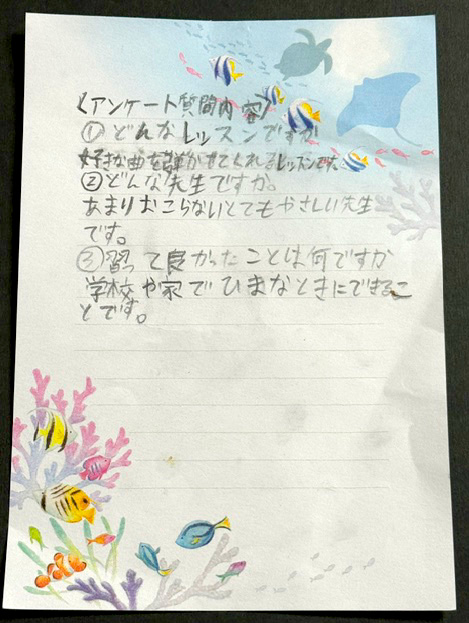 〈アンケート質問内容〉
①どんなレッスンですか
好きな曲を弾かせてくれるレッスンです。
②どんな先生ですか。
あまりおこらないとてもやさしい先生
です。
③習って良かったことは何ですか
学校や家でひまなときにできるこ
とです。